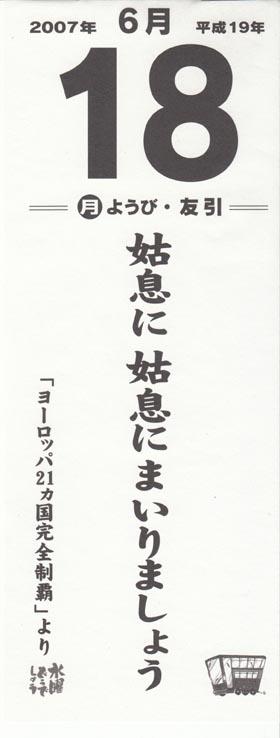 2007年 6月 平成19年
18
月ようび・友引
姑息に 姑息にまいりましょう
「ヨーロッパ21ヵ国完全制覇」より
水曜
どうで
しょう